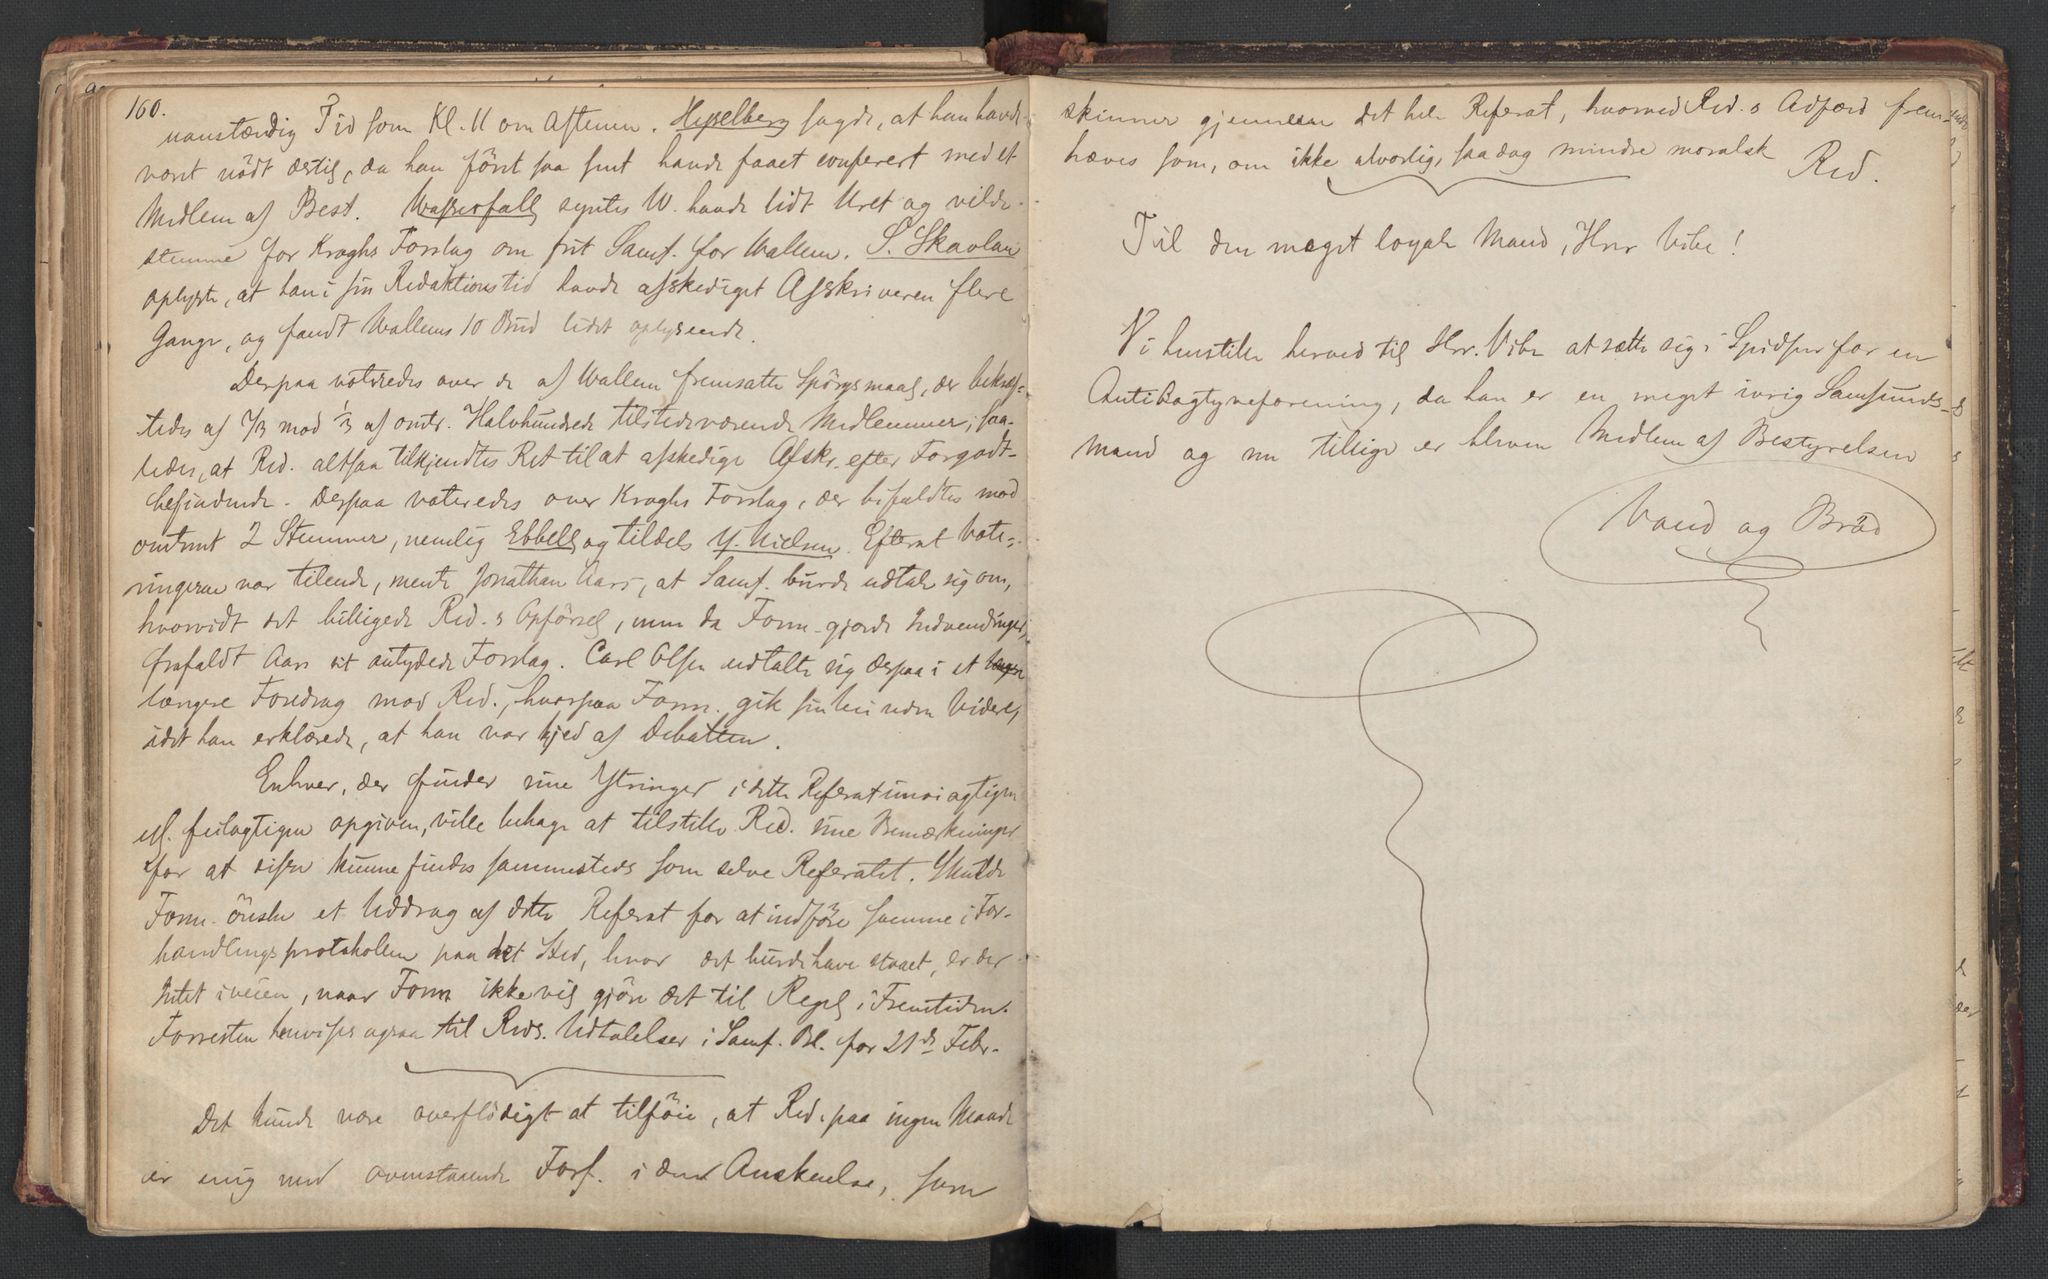 160.
uanstændig Tid som Kl. 11 om Aftenen. Hesselberg sagde, at han havde
været nödt dertil, da han först saa sent havde faaet confereret med et
Medlem af Best. Wasserfall syntes W. havde lidt Uret og vilde
stemme for Kraghs Forslag om frit Samf. for Wallem. S. Skavlan
oplyste, at han i sin Redaktionstid havde afskediget Afskriveren flere
Gange, og fandt Wallems 10 Bud lidet oplysende.
Derpaa voteredes over de af Wallem fremsatte Spörgsmaal, der bekræf-
tedes af 2/3 mod 1/3 af omtr. Halvhundrede tilstedeværende Medlemmer, saa-
ledes, at Red. altsaa tilkjendtes Ret til at afskedige Afskr. efter Forgodt-
befindende. Derpaa voteredes over Kraghs Forslag, der bifaldtes mod
omtrent 2 Stemmer, nemlig Ebbell og tildels Y. Nielsen. Efterat Vote-
ringerne var tilende, mente Jonathan Aars, at Samf. burde udtale sig om,
hvorvidt det billigede Red.s Opförsel, men da Form. gjorde Indvendinger,
frafaldt Aars sit antydede Forslag. Carl Olsen udtalte sig derpaa i et
længere Foredrag mod Red., hvorpaa Form. gik sin Vei uden Videre,
idet han erklærede, at han var kjed af Debatten.
Enhver, der finder sine Ytringer i dette Referat unöiagtigen
el. feilagtigen opgiven, ville behage at tilstille Red. sine Bemærkninger
for at disse kunne findes sammesteds som selve Referatet. Skulde
Form. önske et Uddrag af dette Referat for at indföre samme i For-
handlingsprotokollen paa det Sted, hvor det burde have staaet, er der
Intet iveien, naar Form ikke vil gjöre det til Regel i Fremtiden.
Forresten henvises ogsaa til Reds. Udtalelser i Samf. Bl. for 21de Febr.
Det kunde være overflödigt at tilföie, at Red. paa ingen Maade
er enig med ovenstaaende Forf. i den Anskuelse, som
skinner gjennem det hele Referat, hvorved Red.s Adfærd frem-
hæves som, om ikke alvorlig, saa dog mindre moralsk
Red.
Til den meget loyale Mand, Herr Vibe!
Vi henstille herved til Hrr. Vibe at sætte sig i Spidsen for en
AntiBagtyveforening, da han er en meget ivrig Samfunds-
mand og nu tillige er bleven Medlem af Bestyrelsen
Vand og Bröd